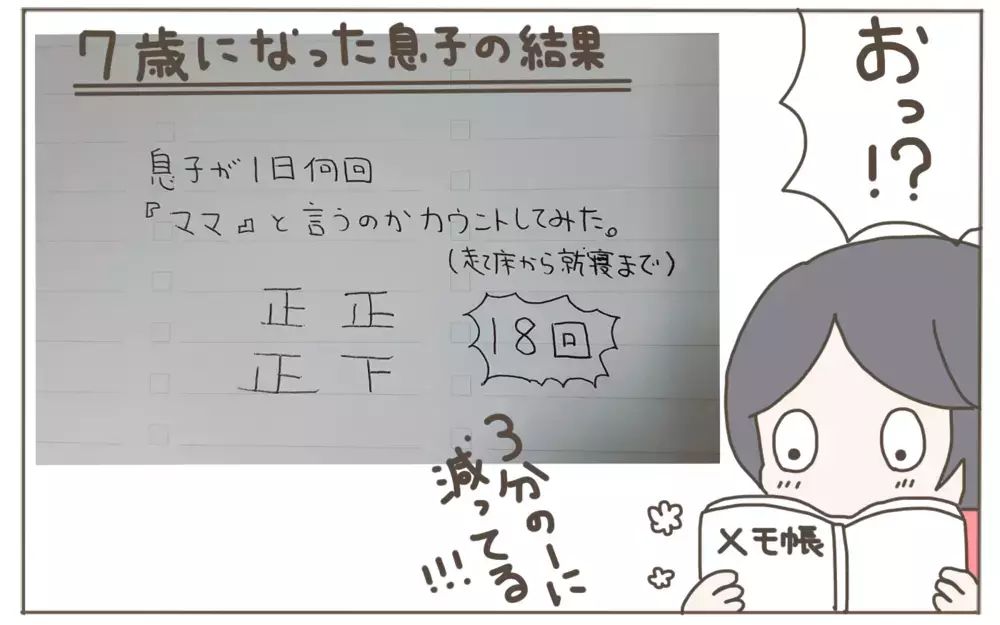 7歳になった息子の結果
おっ!?
息子が1日何回
『ママ』と言うのかカウントしてみた。
(起床から就寝まで)
正 正
正 下
18回
3分の一に
減ってる
!!!
メモ帳